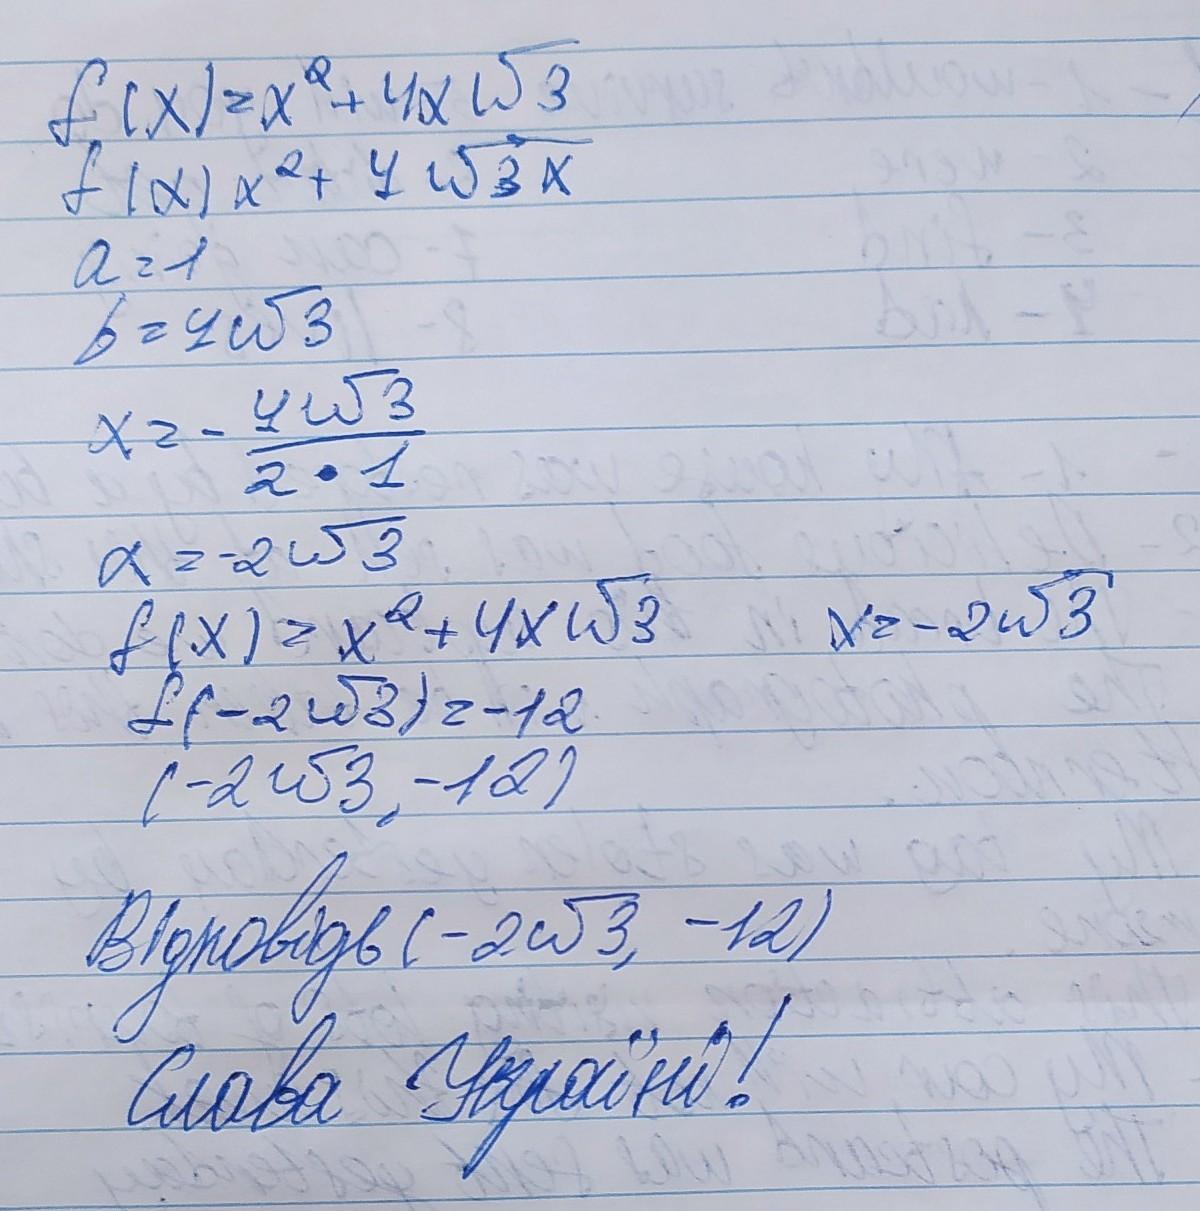 f(x)=x²+4x√3
f(x) x²+4√3x
a=1
b=4√3
x=-4√3/2•1
x=-2√3
f(x)=x²+4x√3 x=-2√3
f(-2√3)=-12
(-2√3,-12)
Відповідь(-2√3,-12)
Слава Україні!